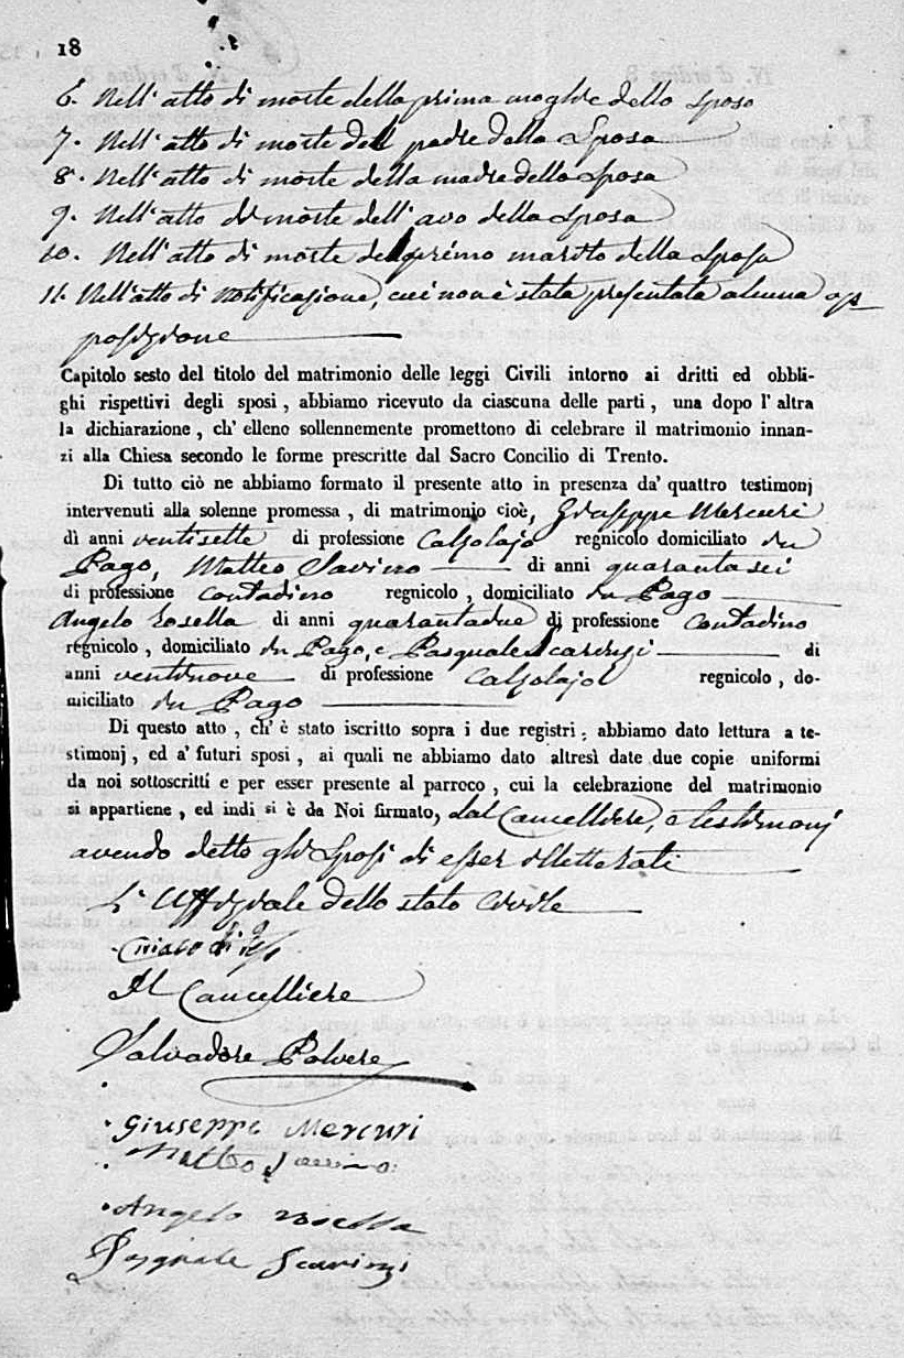 18
6. Nell'atto di morte della prima moglie dello sposo
7. Nell'atto di morte dell padre della Sposa
8. Nell'atto di morte della madre della Sposa
9. Nell'atto di morte dell'avo della Sposa
10. Nell'atto di morte del primo marito della Sposa
11. Nell'atto di notificazione, cui non è stata presentata alcuna op
posizione
Capitolo sesto del titolo del matrimonio delle leggi Civili intorno ai dritti ed obbli-
ghi rispettivi degli sposi, abbiamo ricevuto da ciascuna delle parti, una dopo l'altra
la dichiarazione, ch'elleno sollennemente promettono di celebrare il matrimonio innan-
zi alla Chiesa secondo le forme prescritte dal Sacro Concilio di Trento.
Di tutto ciò ne abbiamo formato il presente atto in presenza da' quattro testimonj
intervenuti alla solenne promessa, di matrimonio cioè, Giuseppe Mercuri
di anni ventisette di professione Calzolajo regnicolo domiciliato in
Pago, Matteo Savino di anni quarantasei
di professione contadino regnicolo, domiciliato in Pago
Angelo Rosella di anni quarantadue di professione Contadino
regnicolo, domiciliato in Pago, e Pasquale Scarinzi di
anni ventinove di professione Calzolajo regnicolo, do-
miciliato in Pago
Di questo atto, ch'è stato iscritto sopra i due registri; abbiamo dato lettura a te-
stimonj, ed a' futuri sposi, ai quali ne abbiamo dato altresì date due copie uniformi
da noi sottoscritti e per esser presente al parroco, cui la celebrazione del matrimonio
si appartiene, ed indi si è da Noi firmato, dal Cancelliere, e testimonj
avendo detto gli Sposi di esser illetterati
L'Uffiziale dello stato civile
Il Cancelliere
Salvadore Polvere
Giuseppe Mercuri
Matteo Savino
Angelo Rosella
Pasquale Scarinzi